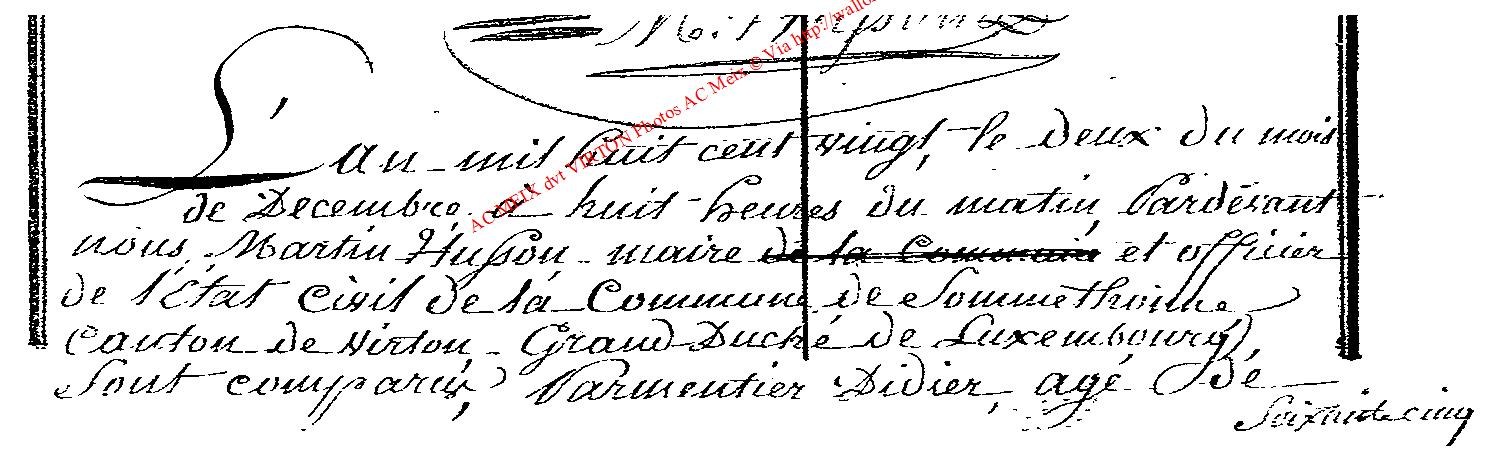 L'an mil huit cent vingt, le deux du mois
de Decembre, à huit heures du matin, Pardévant
nous, Martin Husson, maire de la Commune et officier
de l'État civil de la Commune de Sommethonne
Canton de Virton, Grand Duché de Luxembourg,
Sont comparus, Parmentier Didier, agé de
Soixante cinq
ACMEIX dvt VIRTON Photos AC Meix © Via http://wallo